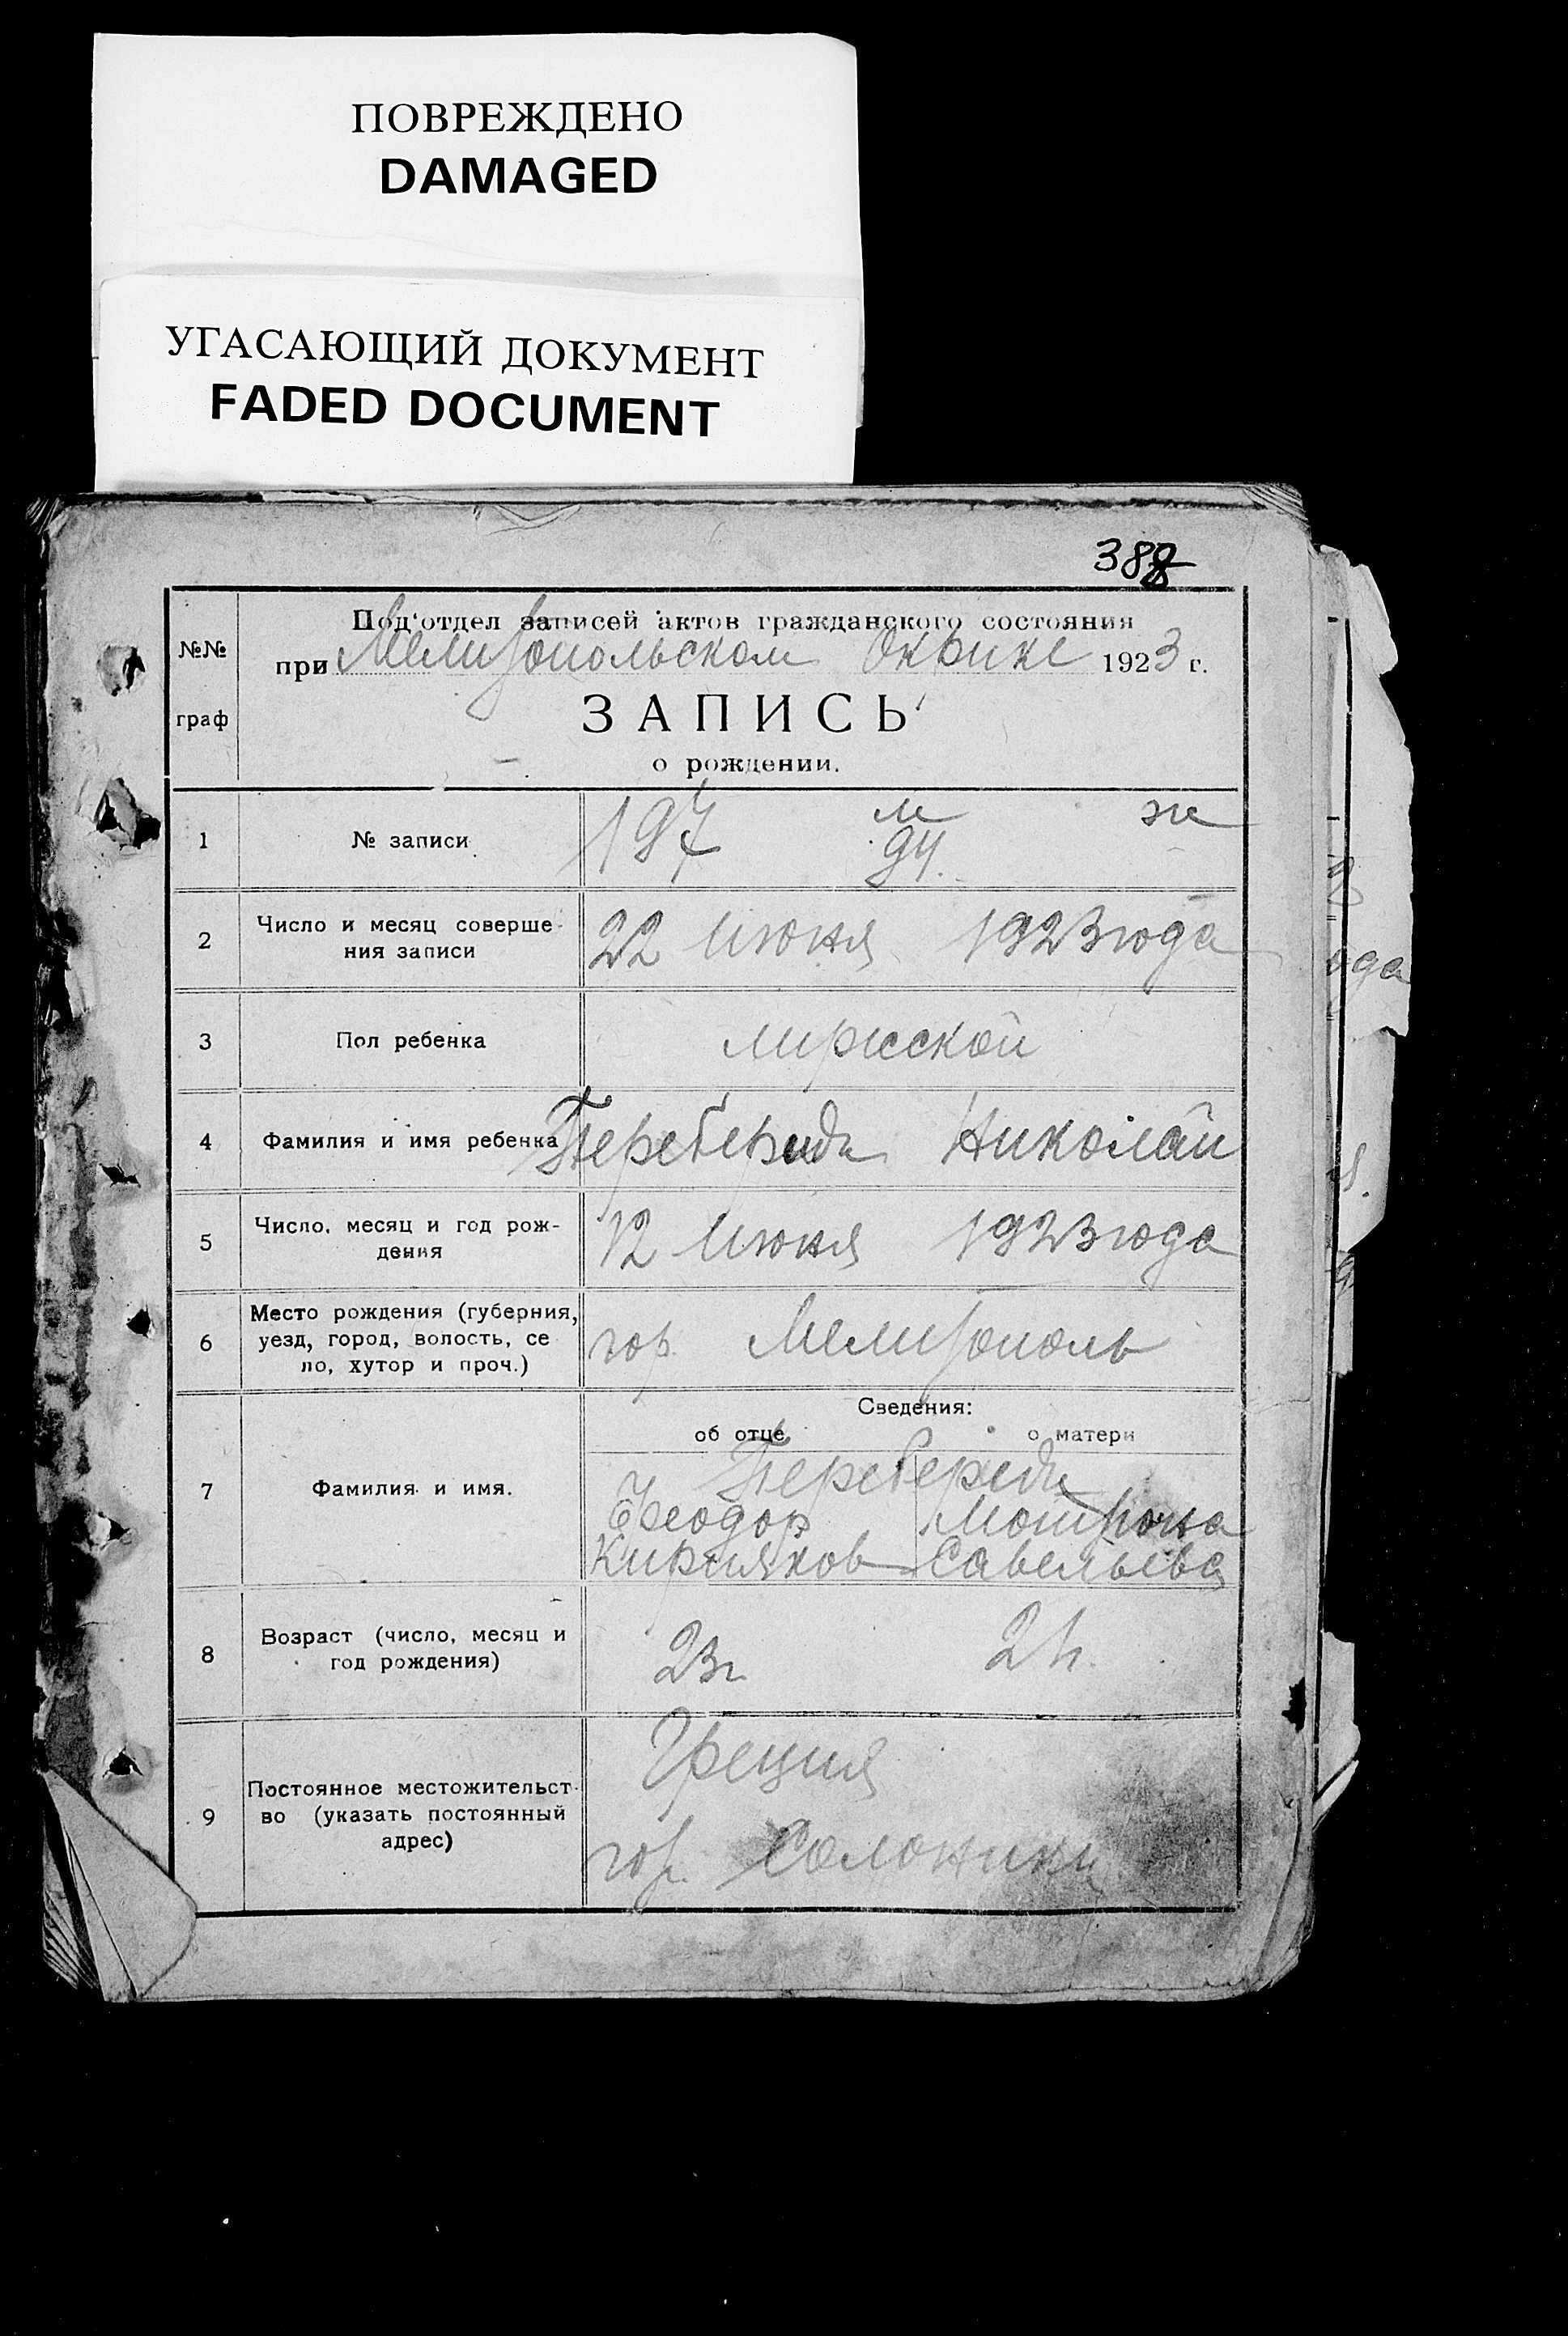 ПОВРЕЖДЕНО
DAMAGED
УГАСАЮЩИЙ ДОКУМЕНТ
FADED DOCUMENT
388
№№
граф
Под‘отдел записей актов гражданского состояния
при Мелитопольском Окрике 1923 г.
ЗАПИСЬ
о рождении.
1 № записи 197 м ж
94.
2 Число и месяц соверше-
ния записи 22 Июня 1923 года
3 Пол ребенка мужской
4 Фамилия и имя ребенка Николай
5 Число, месяц и год рож-
дения 12 Июня 1923 года
6 Место рождения (губерния,
уезд, город, волость, се
ло, хутор и проч.) гор. Мелитополь
Сведения:
об отце о матери
7 Фамилия и имя.
Феодор Мотрона
Кириаков Савельева
8 Возраст (число, месяц и
год рождения) 23г.
9 Постоянное местожительст-
во (указать постоянный
адрес)
Греция
гор. Салоники